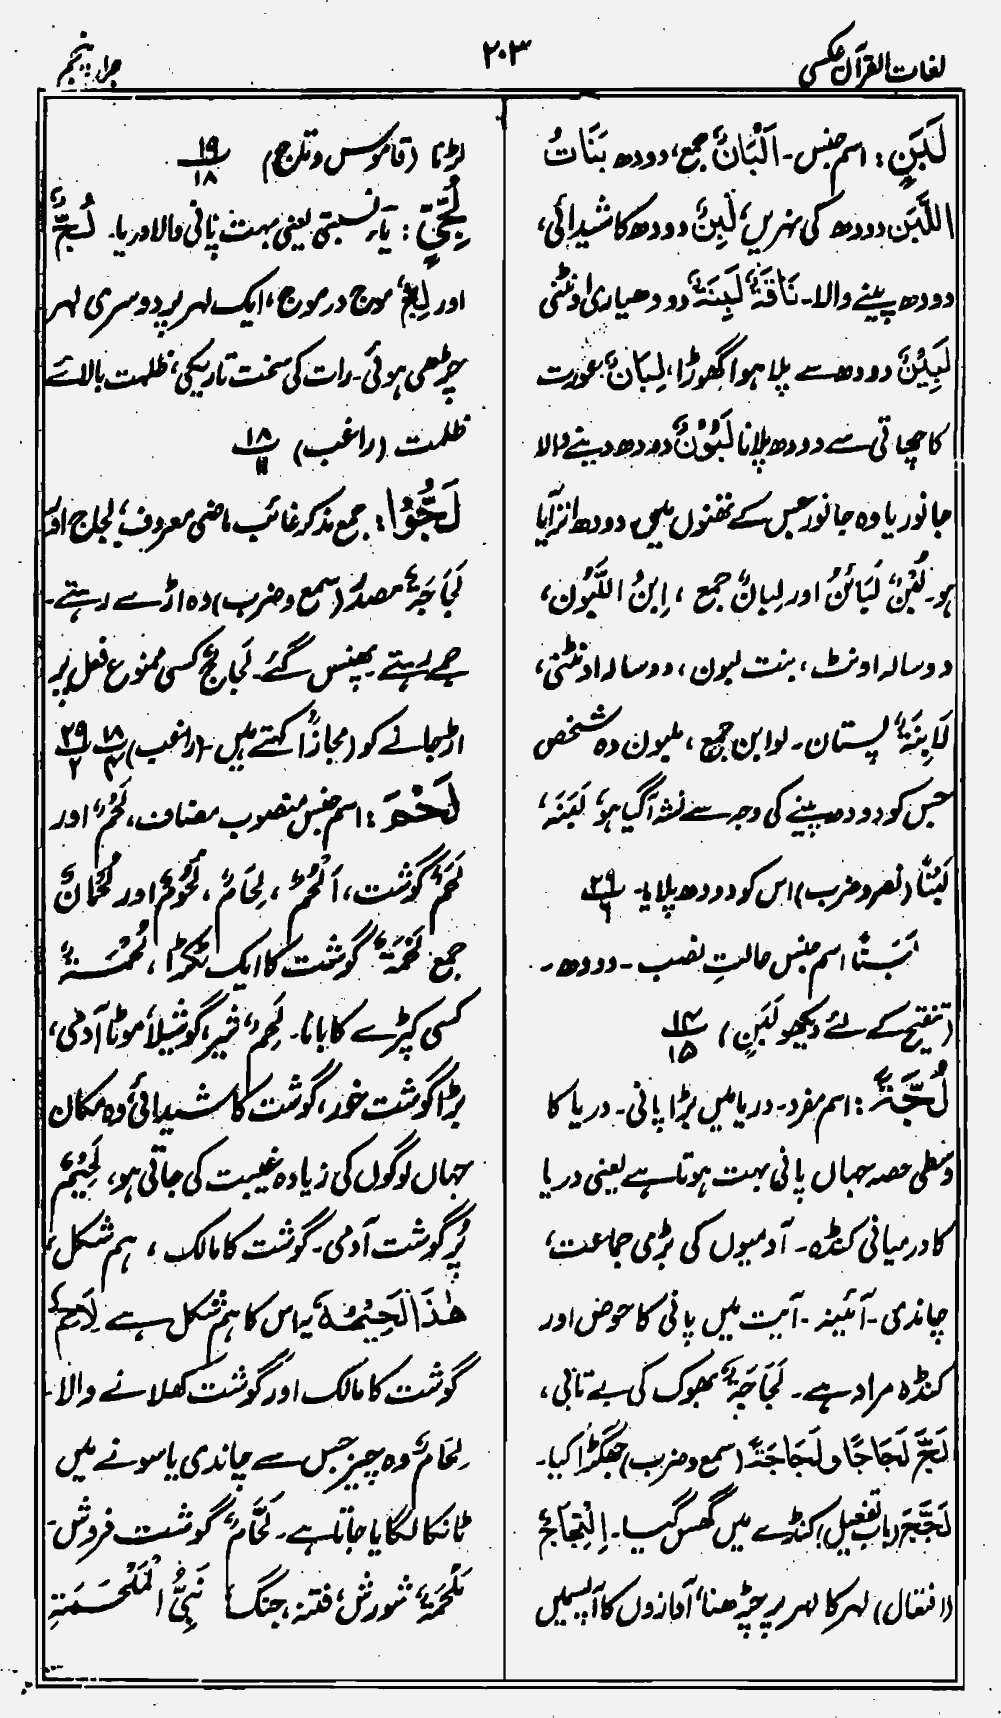 لغات القرآن عکسی
۲۰۳
جلد پنجم
لَبَنٍ: اسم جنس۔ اَلْبَانٌ جمع، دودھ بَنَاتُ
اللَّبَن دودھ کی نہریں، لَبِنٌ دودھ کا شیدائی،
دودھ پینے والا۔ نَاقَةٌ لَبِنَةٌ دودھیاری اونٹنی
لَبِيْنٌ دودھ سے پلا ہوا گھوڑا، لِبَانٌ عورت
کا چھاتی سے دودھ پلانا لَبُوْنٌ دودھ دینے والا
جانور یا وہ جانور جس کے تھنوں میں دودھ اتر آیا
ہو۔ لُبْنٌ لَبَائنُ اور لِبانٌ جمع، اِبنُ اللَّبُون،
دوسالہ اونٹ، بنت لبون، دوسالہ اونٹنی،
لَابِنَةٌ پستان۔ لوابن جمع، ملبون وہ شخص
جس کو دودھ پینے کی وجہ سے نشہ آگیا ہو، لَبَنَهٗ
لَبْنًا (نصر و ضرب) اس کو دودھ پلایا۔ ۲۹/۶
لَبَنًا اسم جنس حالتِ نصب۔ دودھ۔
(تنقیح کے لئے دیکھو لَبَنٍ) ۱۴/۱۵
لُجَّةً: اسم مفرد۔ دریا میں بڑا پانی۔ دریا کا
وسطی حصہ جہاں پانی بہت ہوتا ہے یعنی دریا
کا درمیانی کنڈہ۔ آدمیوں کی بڑی جماعت،
چاندی۔ آئینہ۔ آیت میں پانی کا حوض اور
کنڈہ مراد ہے۔ لَجَاجَةٌ بھوک کی بے تابی،
لَجَّ لَجَاجًا و لَجَاجَةً (سمع و ضرب) جھگڑا کیا۔
لَجَّجَ (باب تفعیل) کنڈے میں گھس گیا۔ اِلْتِجَاجٌ
(افتعال) لہر کا لہر پر چڑھنا، آوازوں کا آپس میں
لڑنا (قاموس و تلج) ۱۹/۱۸
لُجِّيٍّ: یاء نسبتی یعنی بہت پانی والا دریا۔ لُجٌّ
اور لِجٌّ موج در موج، ایک لہر پر دوسری لہر
چڑھی ہوئی۔ رات کی سخت تاریکی، ظلمت بالائے
ظلمت (راغب) ۱۸/۱۱
لَجُّوْا: جمع مذکر غائب ماضی معروف، لجاج اور
لَجَاجَةٌ مصدر (سمع و ضرب) وہ اڑے رہتے۔
جمے رہتے۔ پھنس گئے۔ لَجاجٌ کسی ممنوع فعل پر
اڑ جانے کو (مجازًا) کہتے ہیں۔ (راغب) ۱۸/۴ ۲۹/۲
لَحْمَ: اسم جنس منصوب مضاف، لَحْمٌ اور
لَحَمٌ گوشت، اَلْحُمٌ، لِحَامٌ، لُحُوْمٌ اور لُحْمَانٌ
جمع لَحْمَةٌ گوشت کا ایک ٹکڑا، لُحْمَةٌ
کسی کپڑے کا بانا۔ لَحِمٌ، شیر، گوشیلا، موٹا آدمی،
بڑا گوشت خور، گوشت کا شیدائی، وہ مکان
جہاں لوگوں کی زیادہ غیبت کی جاتی ہو، لَحِيْمٌ
پُر گوشت آدمی۔ گوشت کا مالک، ہم شکل،
هٰذَا لَحِيْمُهٗ یہ اس کا ہم شکل ہے لَاحِمٌ
گوشت کا مالک اور گوشت کھلانے والا۔
لِحَامٌ وہ چیز جس سے چاندی یا سونے میں
ٹانکا لگایا جاتا ہے۔ لَحَّامٌ گوشت فروش۔
مَلْحَمَةٌ شورش، فتنہ، جنگ، نَبِيُّ الْمَلْحَمَةِ